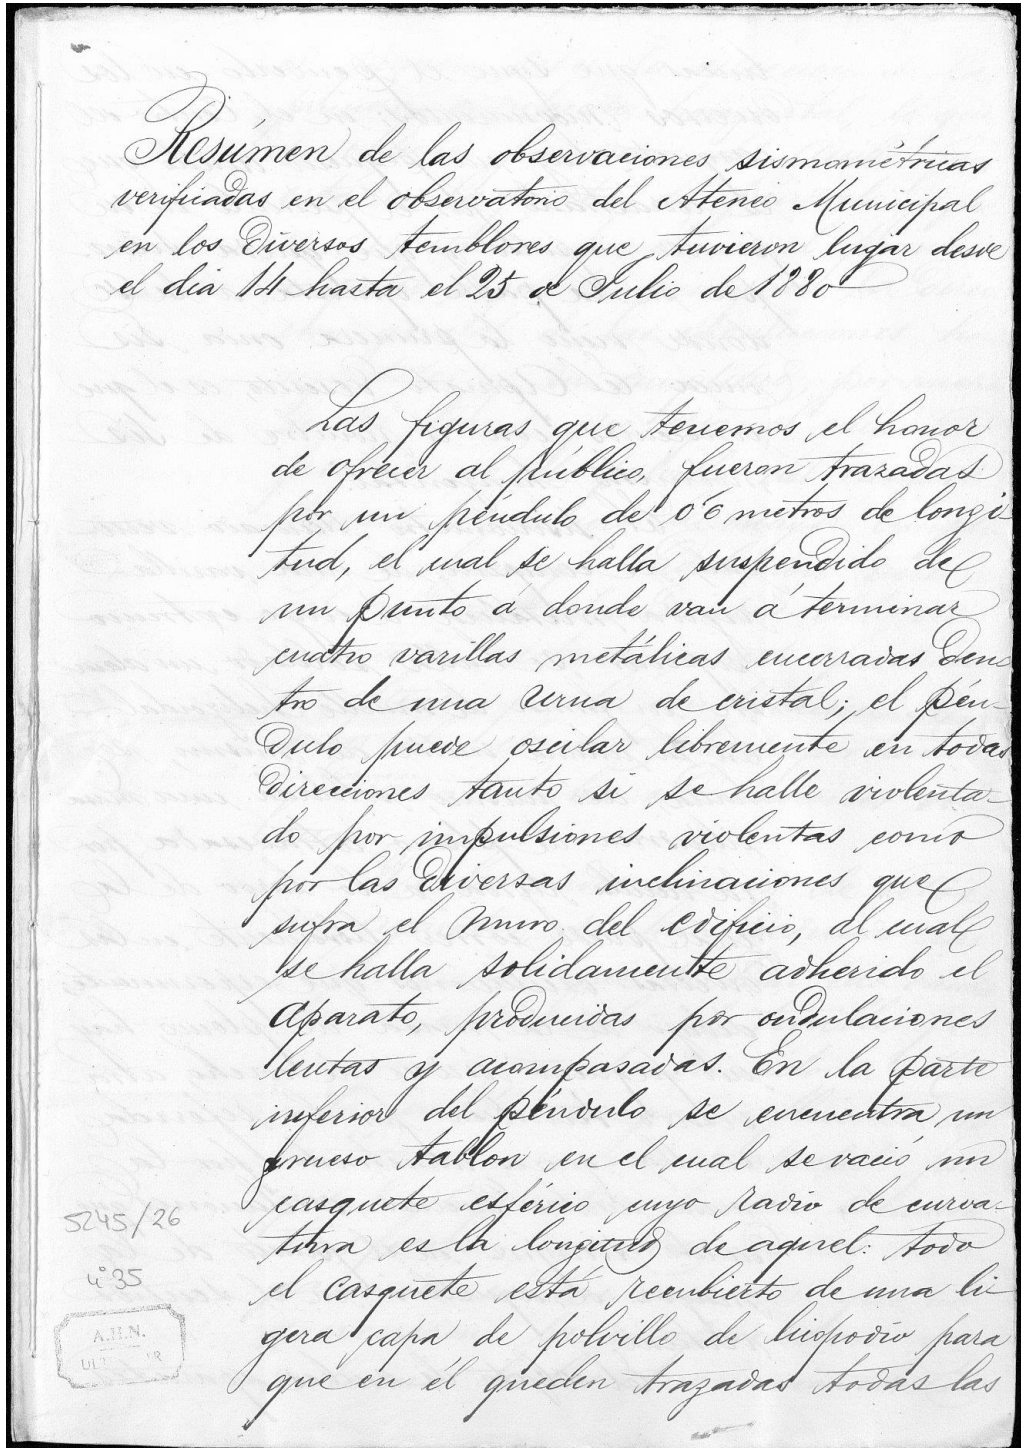 Resúmen de las observaciones sismométricas
verificadas en el observatorio del Ateneo Municipal
en los diversos temblores que tuvieron lugar desde
el dia 14 hasta el 25 de Julio de 1880
Las figuras que tenemos el honor
de ofrecer al público, fueron trazadas
por un péndulo de 0'6 metros de longi-
tud, el cual se halla suspendido de
un punto á donde van á terminar
cuatro varillas metálicas encerradas den-
tro de una urna de cristal; el pén-
dulo puede oscilar libremente en todas
direcciones tanto si se halle violenta-
do por impulsiones violentas como
por las diversas inclinaciones que
sufra el muro del edificio, al cual
se halla solidamente adherido el
aparato, producidas por ondulaciones
lentas y acompasadas. En la parte
inferior del péndulo se encuentra un
grueso tablon en el cual se vació un
casquete esférico cuyo radio de curva-
tura es la longitud de aquel: todo
el casquete está recubierto de una li-
gera capa de polvillo de licopodio para
que en él queden trazadas todas las
5245/26
nº 35
A.H.N.
ULTRAMAR